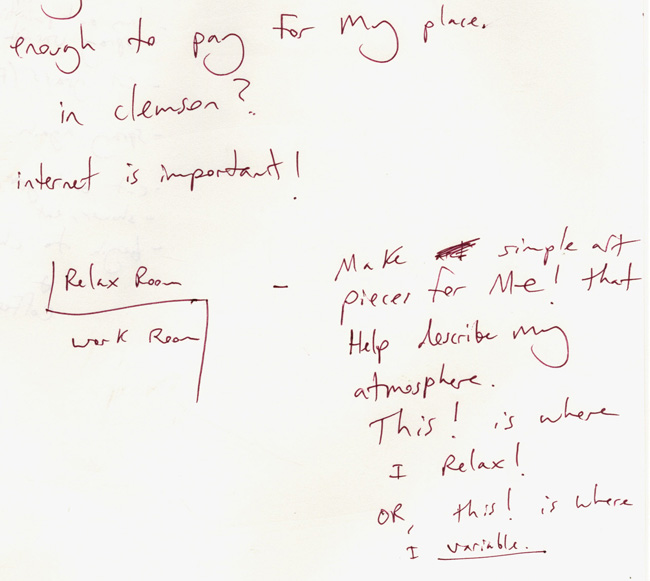 enough to pay for My place.
in clemson?
internet is important!
Relax Room
work Room
- Make simple art
pieces for Me! that
Help describe my
atmosphere.
This! is where
I Relax!
OR, this! is where
I variable.